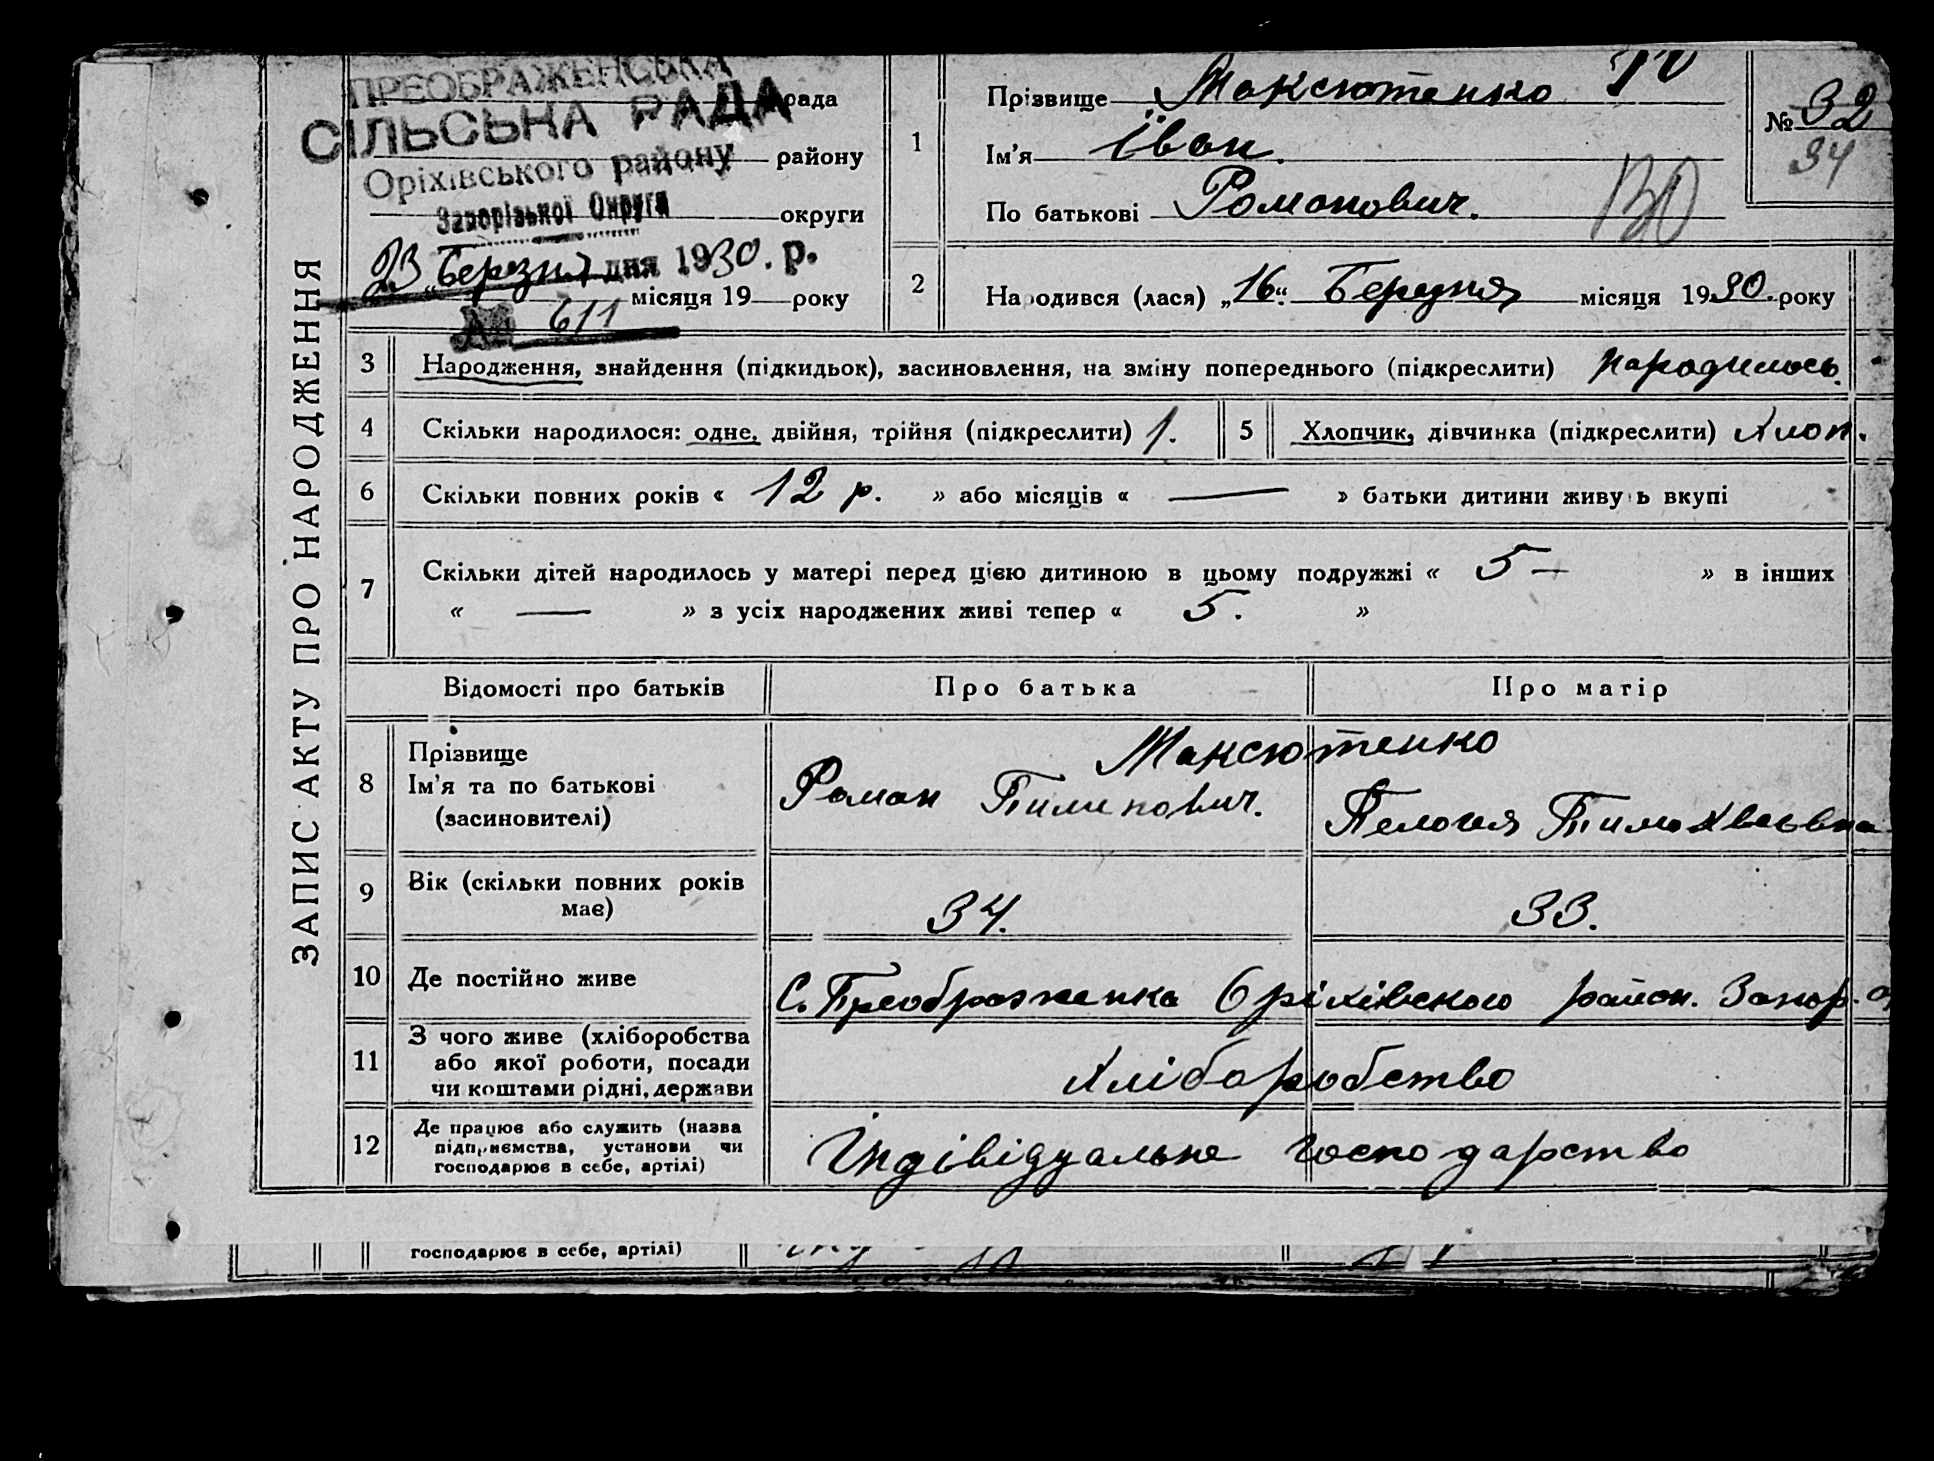 ЗАПИС АКТУ ПРО НАРОДЖЕННЯ
ПРЕОБРАЖЕНСЬКА
СІЛЬСЬКА РАДА рада
Оріхівського району району
Запорізької Округи округи
23 „Березня дня 1930. р.
місяця 19 року
№ 611
1
Прізвище Максютенко
Ім'я Іван.
По батькові Романович.
№ 32
34
130
2
Народився (лася) „16“ Березня місяця 1930. року
3 Народження, знайдення (підкидьок), засиновлення, на зміну попереднього (підкреслити) народилось.
4 Скільки народилося: одне, двійня, трійня (підкреслити) 1.
5 Хлопчик, дівчинка (підкреслити) Хлоп.
6 Скільки повних років « 12 р. » або місяців « — » батьки дитини живуть вкупі
7 Скільки дітей народилось у матері перед цією дитиною в цьому подружжі « 5 — » в інших
« — » з усіх народжених живі тепер « 5. »
Відомості про батьків Про батька Про матір
8 Прізвище
Ім'я та по батькові
(засиновителі)
Максютенко
Роман Пилипович.
Пелогія Тимохвеівна
9 Вік (скільки повних років
має)
34. 33.
10 Де постійно живе С. Преображенка Оріхівського район. Запор.
11 З чого живе (хліборобства
або якої роботи, посади
чи коштами рідні, держави
Хліборобство
12 Де працює або служить (назва
підприємства, установи чи
господарює в себе, артілі)
Індівідуальне господарство
господарює в себе, артілі)